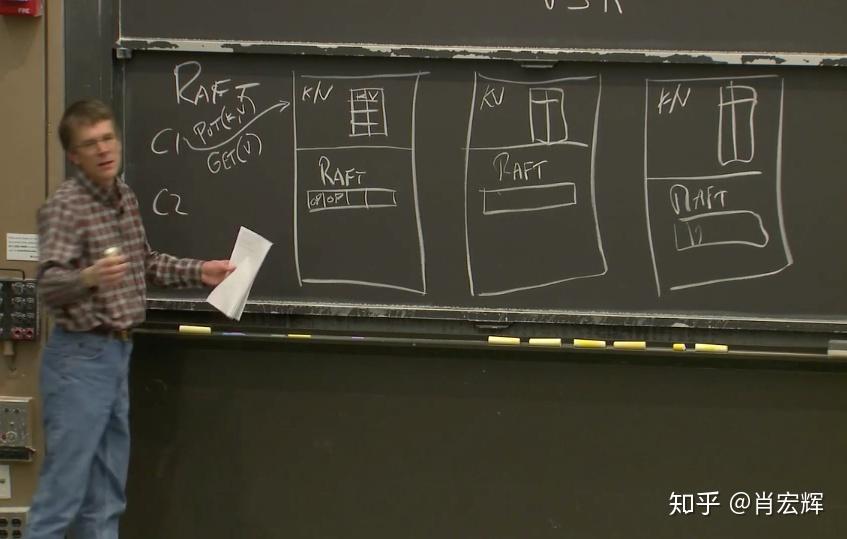 VSR
FIRE
RAFT
C1
PUT(K,V)
GET(V)
C2
K/V
KV
RAFT
OP OP
KV
RAFT
K/V
RAFT
知乎 @肖宏辉